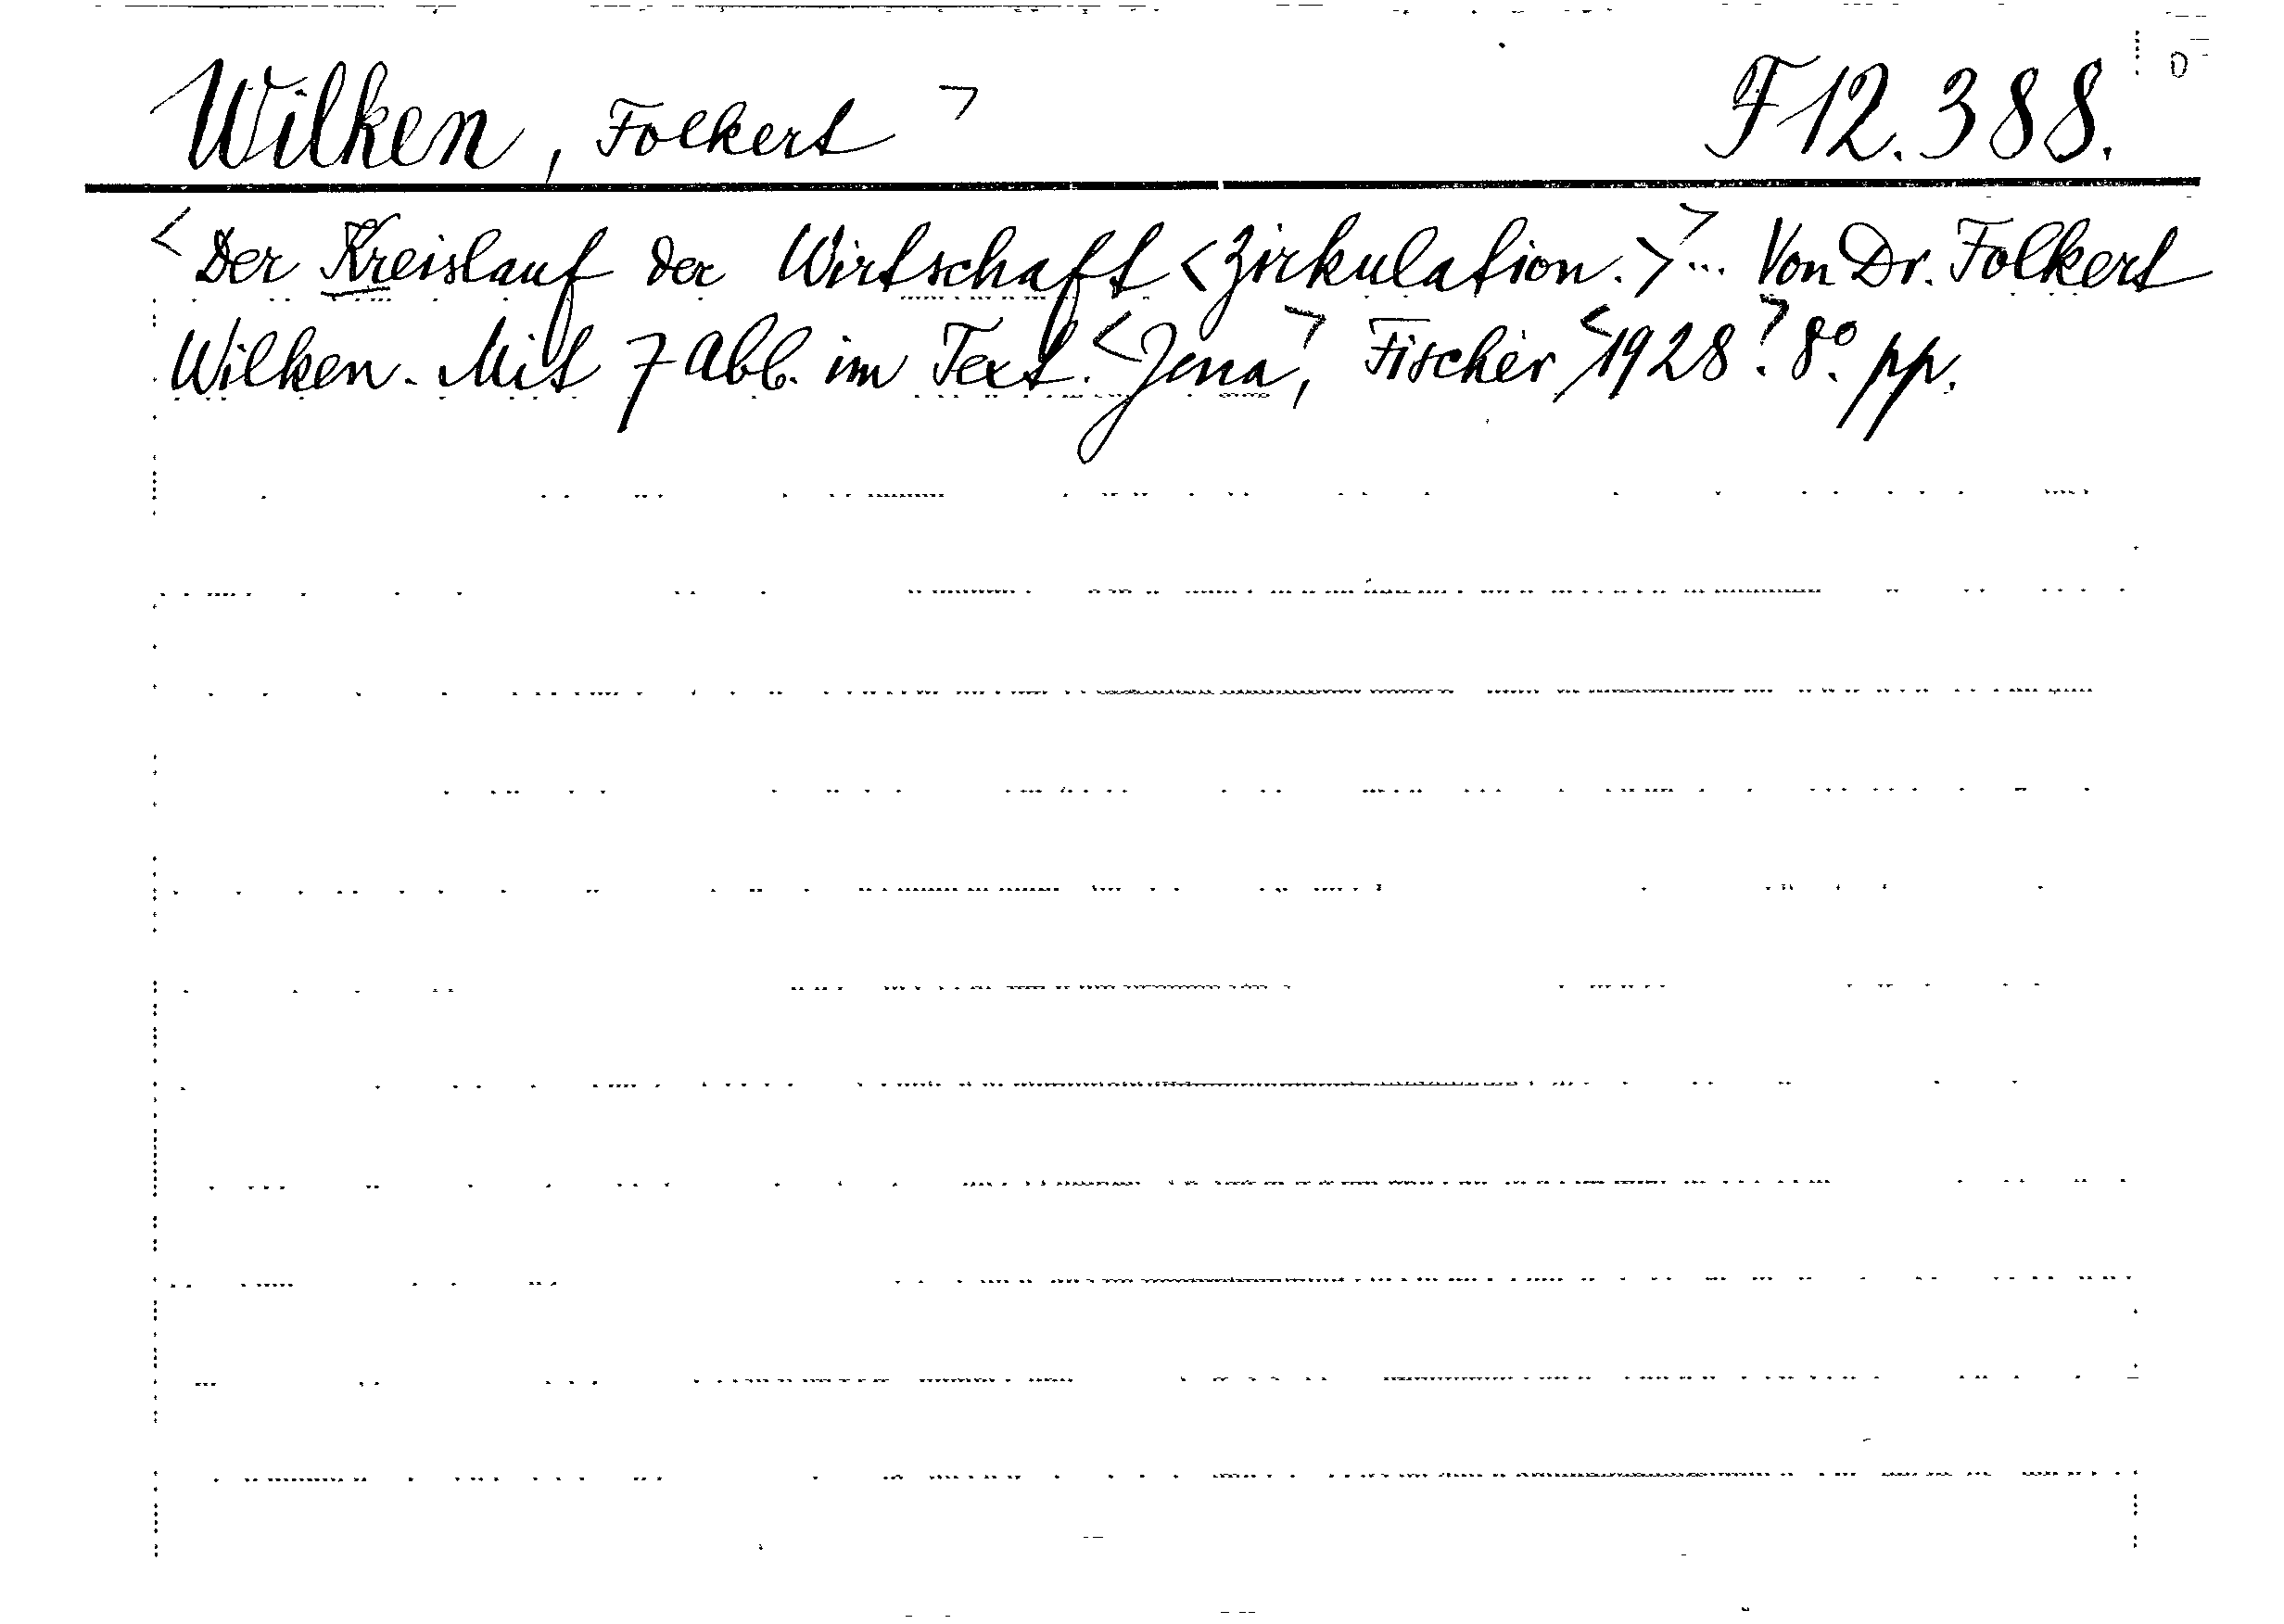 Wilken, Folkert > F12.388.
<Der Kreislauf der Wirtschaft <Zirkulation.>>... Von Dr. Folkert
Wilken. Mit 7 Abb. im Text. <Jena>, Fischer <1928>. 8°. pp.